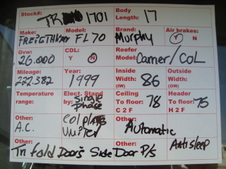 Stock#: TR 1701 Body Length: 17
Make: Freightliner Model: FL70 Brand: Murphy Air brakes? Y N
Gvw: 26,000 CDL: Y N Reefer Model: Carrier/Col
Mileage: 227,382 Year: 1999 Inside Width: (86) Outside Width: (0)
Temperature range: Elect. Stand by: Single phase Ceiling To floor: 78 C 2 F Header To floor: 75 H 2 F
Other: A.C. Other: Col plates Other: Automatic
Other: In Fold Doors Side Door P/S Anti sleep